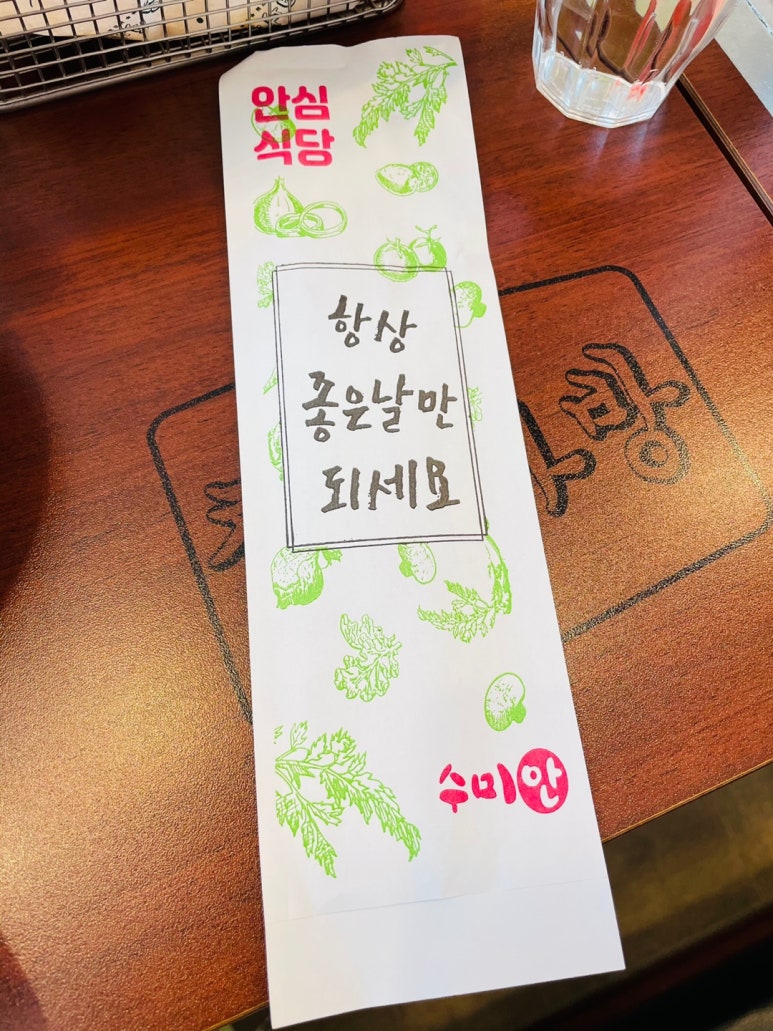 안심
식당
항상
좋은날만
되세요
수미안